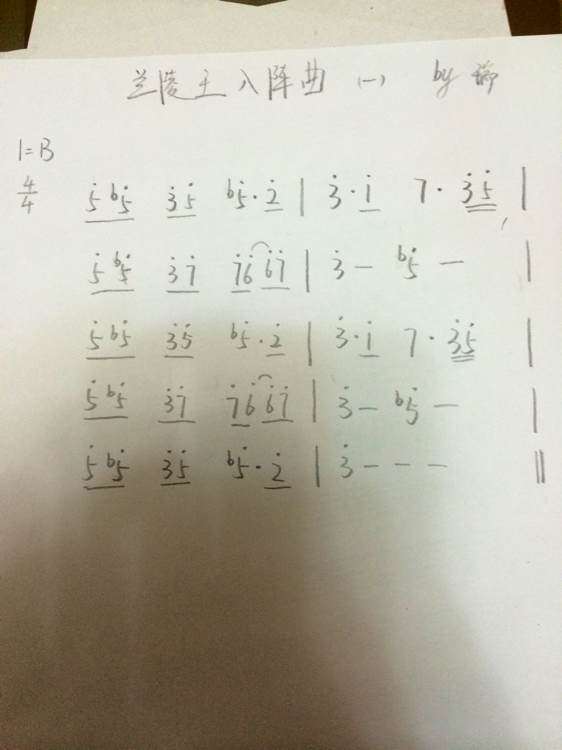 兰陵王入阵曲 (一) by
1=B
4/4
5̇ ♭5̇ 3̇ 5̇ ♭5̇· 2̇ | 3̇· 1̇ 7· 3̇ 5̇ |
5̇ ♭5̇ 3̇ 7̇ 7̇ 6̇ 6̇ 7̇ | 3̇ – ♭5̇ – |
5̇ ♭5̇ 3̇ 5̇ ♭5̇· 2̇ | 3̇· 1̇ 7· 3̇ 5̇ |
5̇ ♭5̇ 3̇ 7̇ 7̇ 6̇ 6̇ 7̇ | 3̇ – ♭5̇ – |
5̇ ♭5̇ 3̇ 5̇ ♭5̇· 2̇ | 3̇ – – – ‖